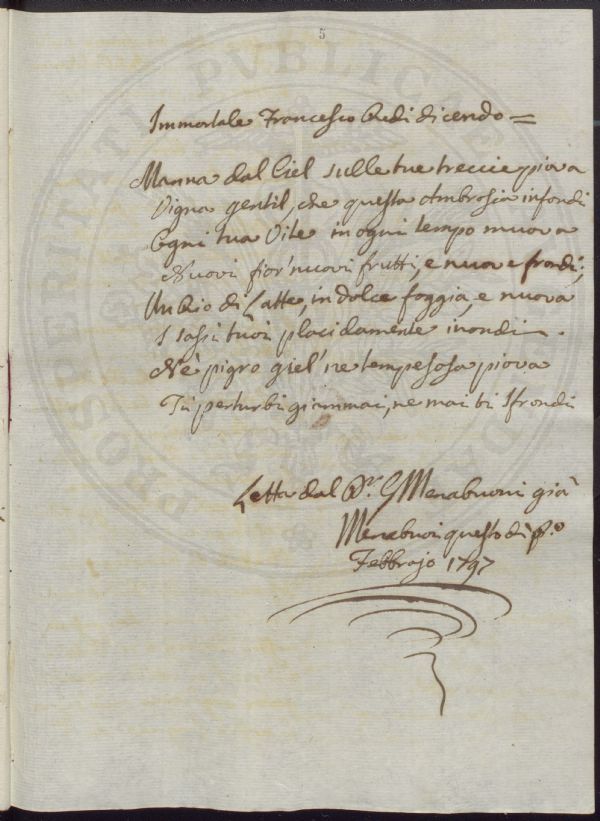 5
Immortale Francesco Redi dicendo =
Manna dal Ciel sulle tue treccie piova
Vigna gentil, che questa Ambrosia infondi
Ogni tua Vite in ogni tempo muova
Nuovi fior' nuovi frutti, e nuove frondi;
Un Rio di Latte, in dolce foggia, e nuova
I sassi tuoi placidamente inondi
Nè pigro giel' ne tempesosa piova
Tu perturbi giammai, ne mai ti sfrondi
Letta dal Dr. G Menabuoni già
Menabuoi questo dì po.
Febbrajo 1797
PROSPERITATI PVBLICAE